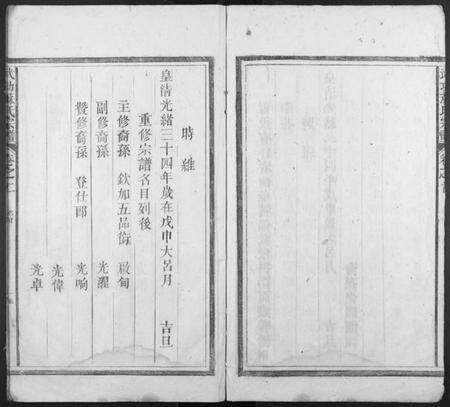 時維
皇清光緒三十四年歲在戊申大呂月　吉旦
重修宗譜各目列後
主修裔孫　欽加五品銜　啟甸
副修裔孫　光耀
贊修裔孫　登仕郎　光响
光偉
光卓